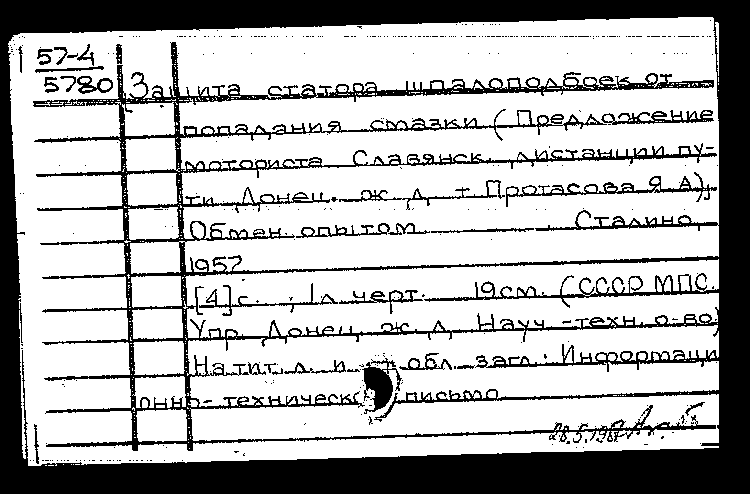 57-4
5780
Защита статора шпалоподбоек от
попадания смазки (Предложение
моториста Славянск. дистанции пу-
ти Донец. ж. д. т. Протасова Я. А.).
Обмен опытом. Сталино,
1957.
[4] с. ; 1 л. черт. 19 см. (СССР МПС.
Упр. Донец. ж. д. Науч.-техн. о-во)
На тит. л. и обл. загл.: Информаци
онно-техническое письмо
28.5.19